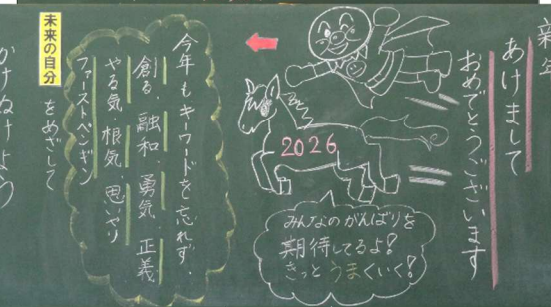 新年
あけまして
おめでとうございます
2026
みんなのがんばりを
期待してるよ!
きっとうまくいく!
今年もキーワードを忘れず、
創る、融和、勇気、正義、
やる気、根気、思いやり
ファーストペンギン
未来の自分をめざして
かけぬけよう